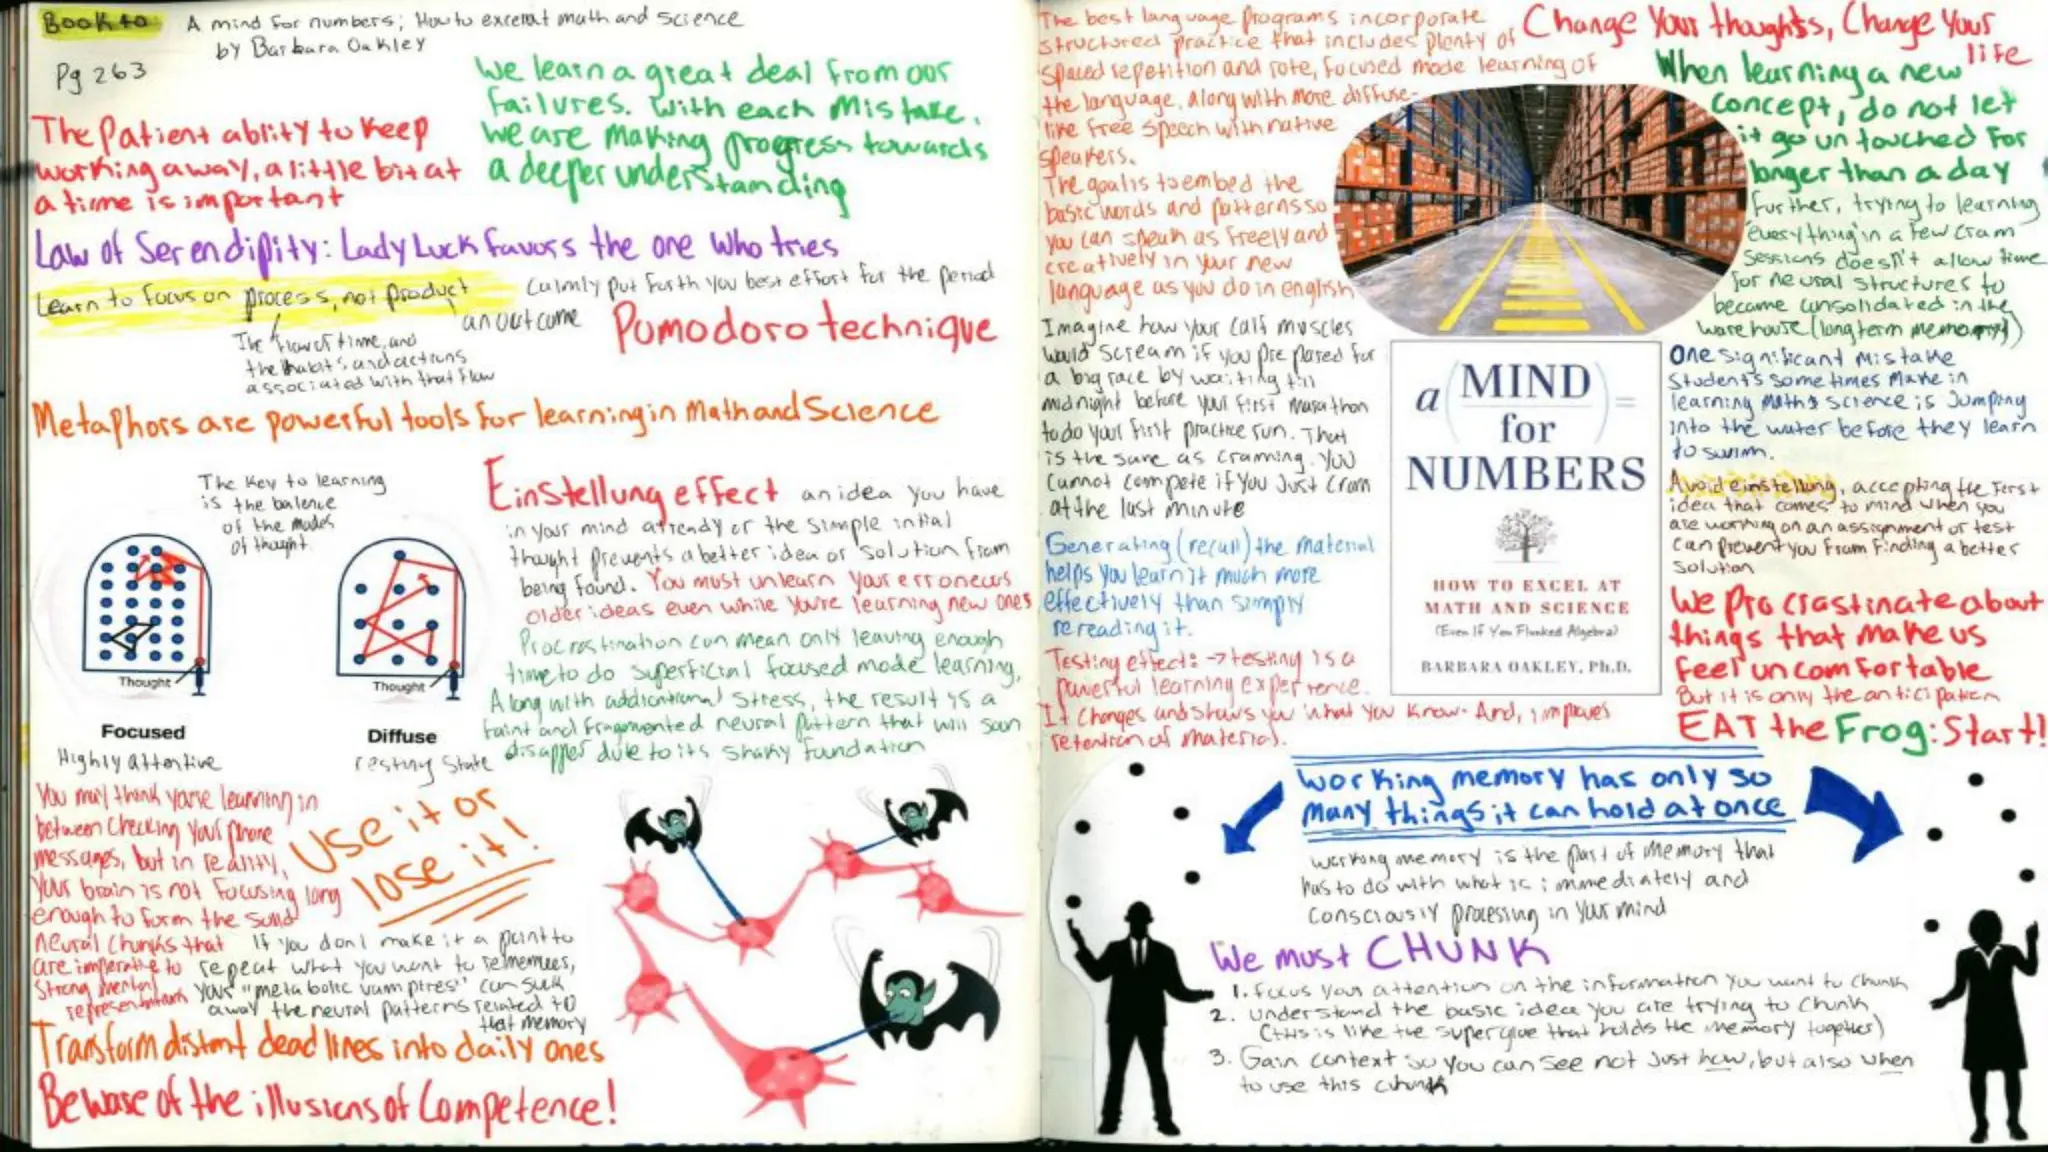 Book to
A mind for numbers; How to excerat math and science
by Barbara Oakley
Pg 263
The Patient ablity to keep
working away, a little bit at
a time is important
We learn a great deal from our
failures. with each mistake,
we are making progress towards
a deeper understanding
Law of Serendipity: Lady Luck favors the one who tries
Learn to focus on process, not product
an outcome
The flow of time, and
the habits and actions
associated with that flow
Calmly put forth you best effort for the period
Pomodoro technique
Metaphors are powerful tools for learning in Math and Science
The Key to learning
is the balence
of the modes
of thought.
Thought
Focused
Highly attentive
Thought
Diffuse
resting state
Einstellung effect an idea you have
in your mind already or the simple initial
thought prevents a better idea or solution from
being found. You must unlearn your erroneous
older ideas even while you're learning new ones
Procrastination can mean only leaving enough
time to do superficial focused mode learning,
Along with addicational stress, the result is a
faint and fragmented neural pattern that will soon
disapper due to its shaky foundation
You may think you're learning in
between checking your phone
messages, but in reality,
your brain is not focusing long
enough to form the solid
neural chunks that
are imperative to
strong mental
representations
Use it or
lose it!
If you don't make it a point to
repeat what you want to remember,
your "metabolic vampires" can suck
away the neural patterns related to
that memory
Transform distant dead lines into daily ones
Beware of the illusions of Competence!
The best language programs incorporate
structured practice that includes plenty of
spaced repetition and rote, focused mode learning of
the language, along with more diffuse-
like free speech with native
speakers.
The goal is to embed the
basic words and patterns so
you can speak as freely and
creatively in your new
language as you do in english
Imagine how your calf muscles
would scream if you prepared for
a big race by waiting till
midnight before your first marathon
to do your first practice run. That
is the same as cramming. You
cannot compete if you just cram
at the last minute
Generating (recall) the material
helps you learn it much more
effectively than simply
rereading it.
Testing effect: → testing is a
powerful learning experience.
It changes and shows you what you know. And, improves
retention of material.
Change Your thoughts, Change Your
life
When learning a new
concept, do not let
it go untouched for
longer than a day
Further, trying to learning
everything in a few cram
sessions doesn't allow time
for neural structures to
become consolidated in the
warehouse (long term memory)
a MIND
for
NUMBERS
=
HOW TO EXCEL AT
MATH AND SCIENCE
(Even If You Flunked Algebra)
BARBARA OAKLEY, Ph.D.
One significant mistake
students some times make in
learning math & science is Jumping
into the water before they learn
to swim.
Avoid einstellung, accepting the first
idea that comes to mind when you
are working on an assignment or test
can prevent you from finding a better
solution
We Procrastinate about
things that make us
feel uncomfortable
But it is only the anticipation
EAT the Frog: Start!
working memory has only so
many things it can hold at once
working memory is the part of memory that
has to do with what is immediately and
consciously processing in your mind
We must CHUNK
1. Focus your attention on the information you want to chunk
2. understand the basic idea you are trying to chunk
(this is like the superglue that holds the memory together)
3. Gain context so you can see not just how, but also when
to use this chunk